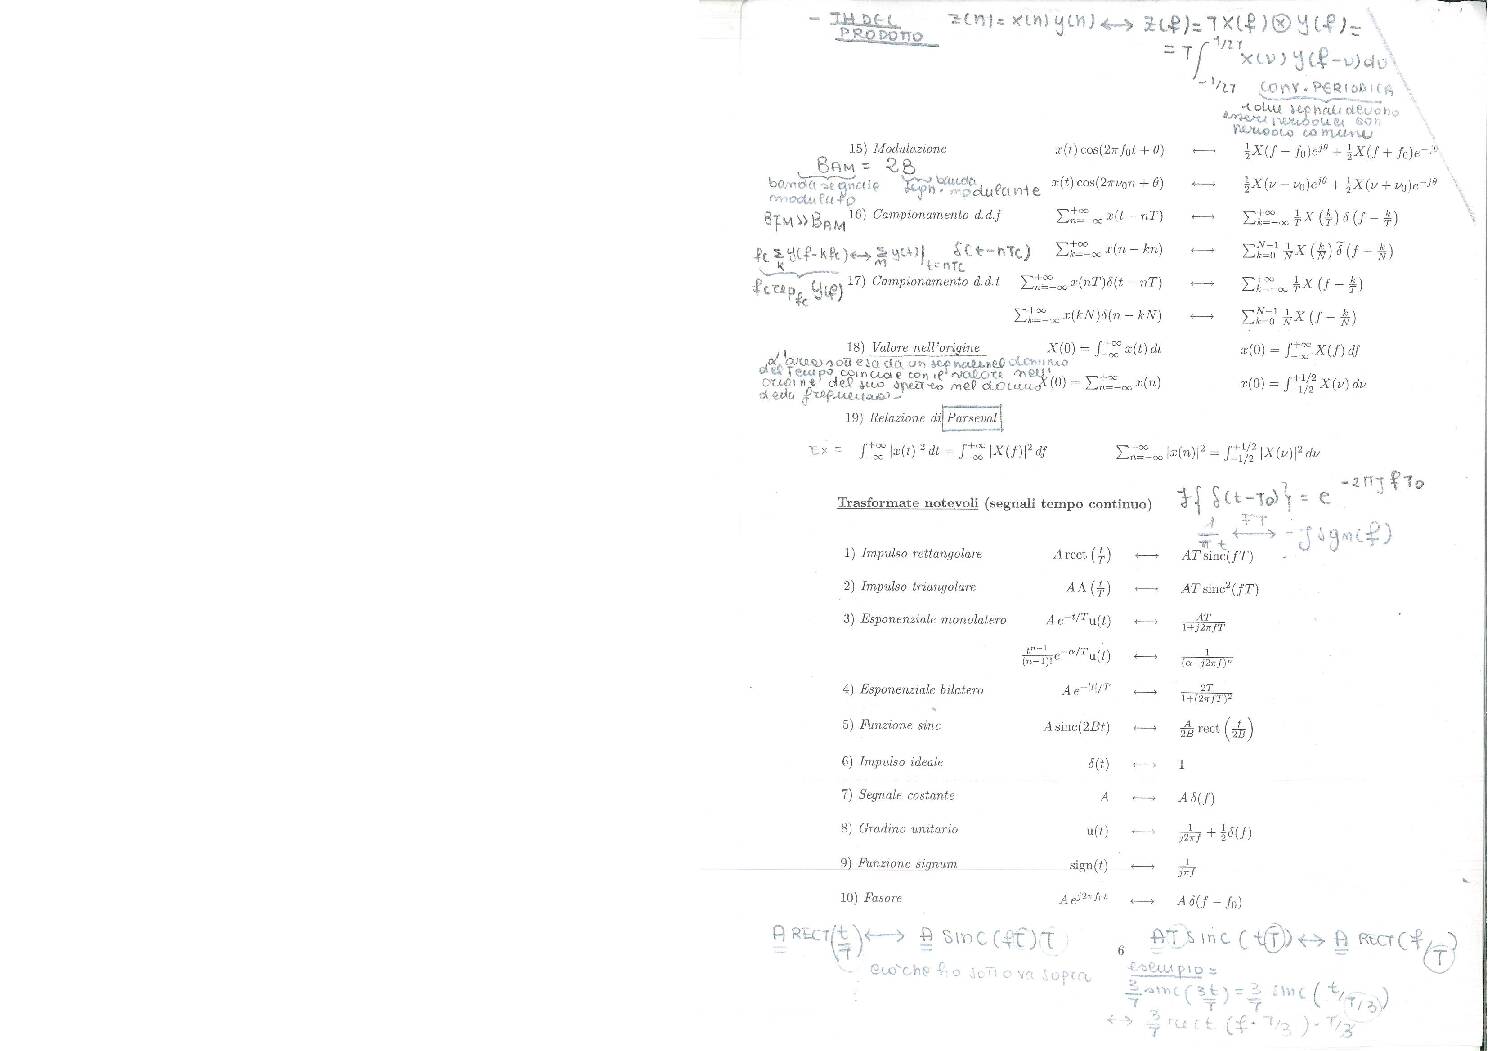 - TH DEL PRODOTTO z(n) = x(n) y(n) ⟷ Z(f) = T X(f) ⊗ Y(f) =
= T ∫_{-1/2T}^{1/2T} X(ν) Y(f-ν) dν
CONV. PERIODICA
segnali devono
essere periodici con
periodo comune
15) Modulazione x(t) cos(2πf₀t + θ) ⟷ ½X(f − f₀)e^{jθ} + ½X(f + f₀)e^{−jθ}
B_AM = 2B
banda segnale modulato banda segn. modulante
x(t) cos(2πν₀n + θ) ⟷ ½X(ν − ν₀)e^{jθ} + ½X(ν + ν₀)e^{−jθ}
B_FM >> B_AM
16) Campionamento d.d.f ∑_{n=−∞}^{+∞} x(t − nT) ⟷ ∑_{k=−∞}^{+∞} 1/T X(k/T) δ(f − k/T)
fc ∑_k Y(f-kfc) ⟷ ∑_n y(t)|_{t=nTc} δ(t-nTc)
∑_{k=−∞}^{+∞} x(n − kn) ⟷ ∑_{k=0}^{N−1} 1/N X(k/N) δ̃(f − k/N)
fc rep_fc Y(f)
17) Campionamento d.d.t ∑_{n=−∞}^{+∞} x(nT)δ(t − nT) ⟷ ∑_{k=−∞}^{+∞} 1/T X(f − k/T)
∑_{k=−∞}^{+∞} x(kN)δ(n − kN) ⟷ ∑_{k=0}^{N−1} 1/N X(f − k/N)
18) Valore nell'origine X(0) = ∫_{−∞}^{+∞} x(t) dt x(0) = ∫_{−∞}^{+∞} X(f) df
l'area sottesa da un segnale nel dominio
del tempo coincide con il valore nell'
origine del suo spettro nel dominio
della frequenza
X(0) = ∑_{n=−∞}^{+∞} x(n) x(0) = ∫_{1/2}^{+1/2} X(ν) dν
19) Relazione di Parseval
Ex = ∫_{−∞}^{+∞} |x(t)|² dt = ∫_{−∞}^{+∞} |X(f)|² df ∑_{n=−∞}^{−∞} |x(n)|² = ∫_{−1/2}^{+1/2} |X(ν)|² dν
Trasformate notevoli (segnali tempo continuo) F{δ(t-T₀)} = e^{-2πjfT₀}
1/πt ⟷^{FT} -j sgn(f)
1) Impulso rettangolare A rect(t/T) ⟷ AT sinc(fT)
2) Impulso triangolare A Λ(t/T) ⟷ AT sinc²(fT)
3) Esponenziale monolatero A e^{−t/T} u(t) ⟷ AT/(1+j2πfT)
t^{n−1}/(n−1)! e^{−α/T} u(t) ⟷ 1/(α j2πf)^n
4) Esponenziale bilatero A e^{−|t|/T} ⟷ 2T/(1+(2πfT)²)
5) Funzione sinc A sinc(2Bt) ⟷ A/2B rect(f/2B)
6) Impulso ideale δ(t) ⟷ 1
7) Segnale costante A ⟷ A δ(f)
8) Gradino unitario u(t) ⟷ 1/(j2πf) + ½δ(f)
9) Funzione signum sign(t) ⟷ 1/(jπf)
10) Fasore A e^{j2πf₀t} ⟷ A δ(f − f₀)
A RECT(t/T) ⟷ A sinc(fT)T
AT sinc(t(T)) ⟷ A RECT(f/T)
6
ciò che ho sotto va sopra
esempio =
3/T sinc(3t/T) = 3/T sinc(t/(T/3))
⟷ 3/T rect(f · T/3) · T/3